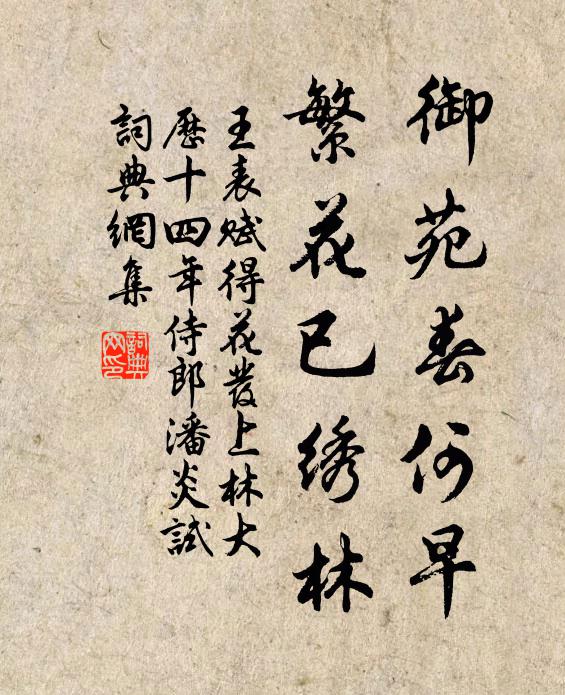 御苑春何早
繁花已绣林
王表赋得花發上林大
歷十四年侍郎潘炎試
詞典網集
詞典网印